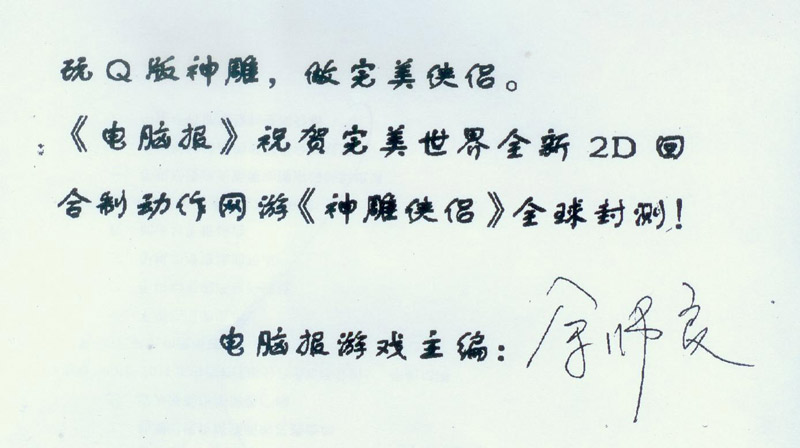 玩Q版神雕，做完美侠侣。
《电脑报》祝贺完美世界全新2D回
合制动作网游《神雕侠侣》全球封测！
电脑报游戏主编：